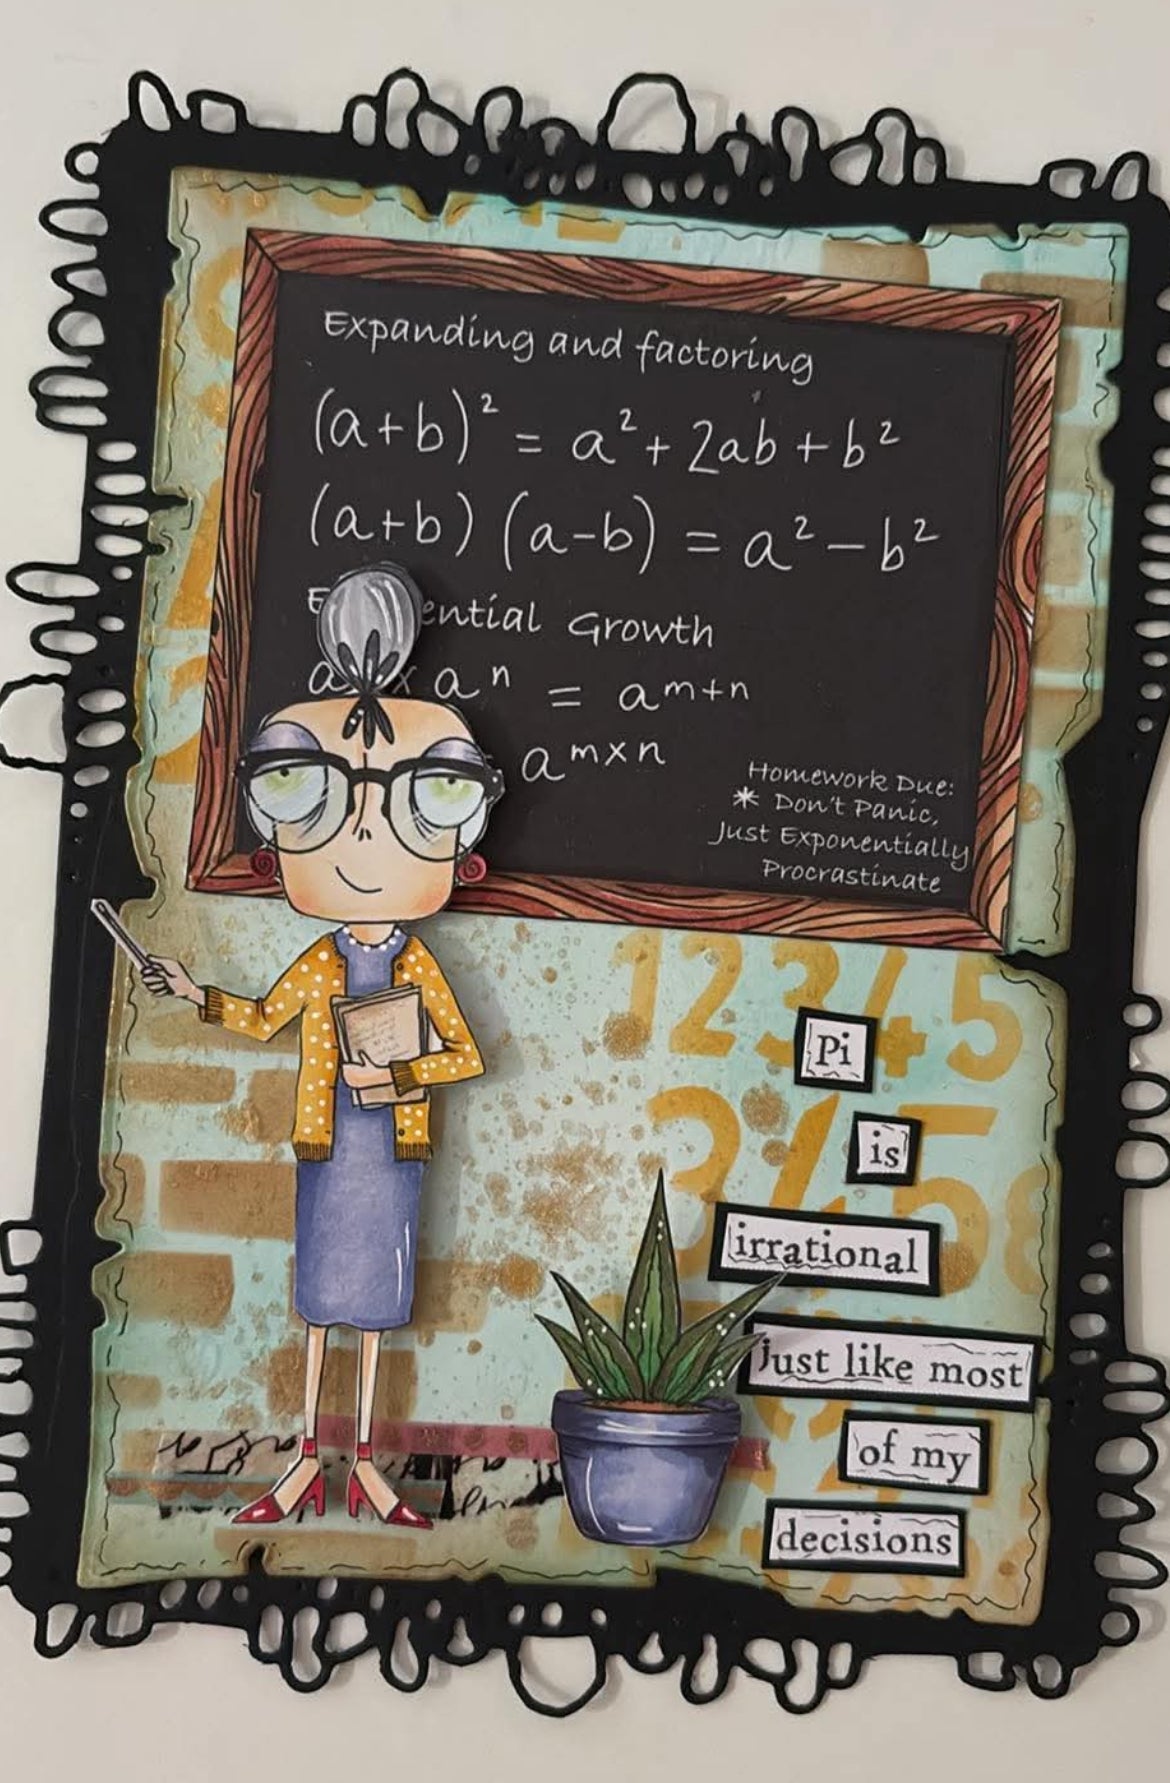 Expanding and factoring
(a+b)² = a² + 2ab + b²
(a+b) (a-b) = a² - b²
Growth
aⁿ = aᵐ⁺ⁿ
aᵐˣⁿ
Homework Due:
* Don't Panic,
Just Exponentially
Procrastinate
12345
345
Pi
is
irrational
just like most
of my
decisions